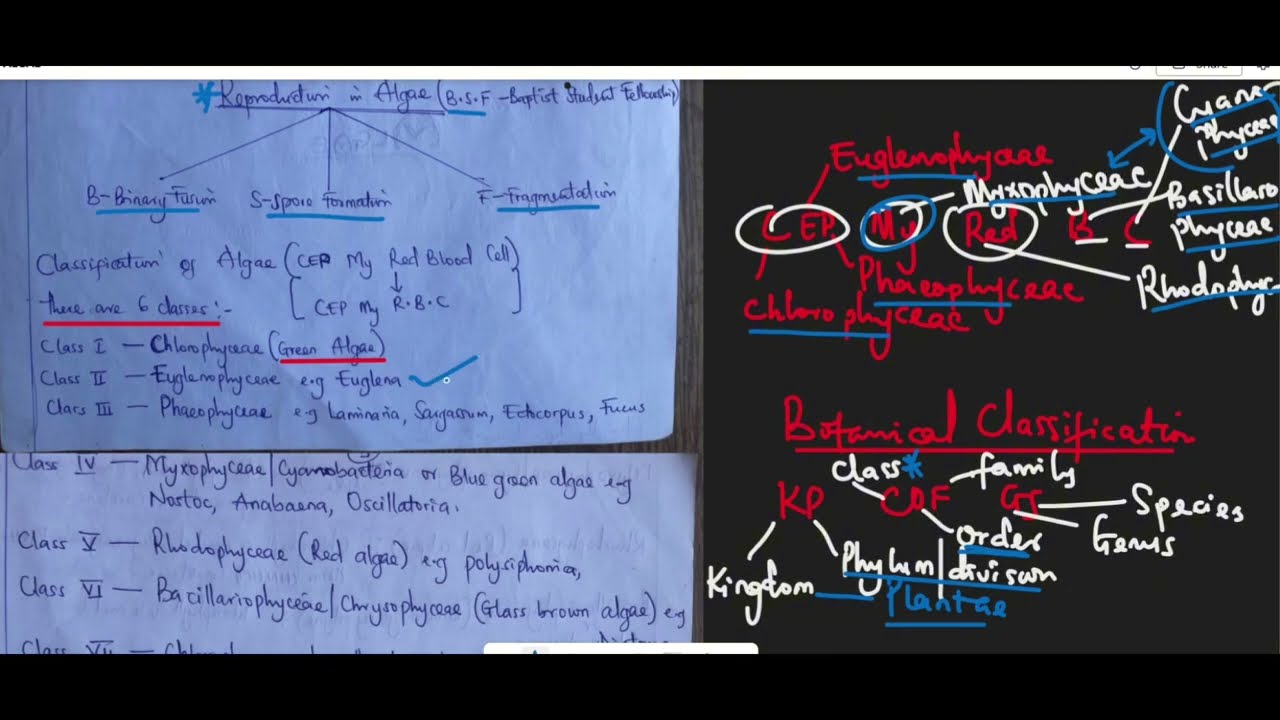 Reproduction in Algae (B.S.F - Baptist Student Fellowship)
B-Binary Fusion S-Spore Formation F-Fragmentation
Classification of Algae (CEP My Red Blood Cell)
CEP My R.B.C
There are 6 classes:-
Class I — Chlorophyceae (Green Algae)
Class II — Euglenophyceae e.g Euglena
Class III — Phaeophyceae e.g Laminaria, Sargassum, Ectocorpus, Fucus
Class IV — Myxophyceae/Cyanobacteria or Blue green algae e.g
Nostoc, Anabaena, Oscillatoria.
Class V — Rhodophyceae (Red algae) e.g polysiphonia,
Class VI — Bacillariophyceae/Chrysophyceae (Glass brown algae) e.g
Class VII —
Share
Cyano
phyceae
Euglenophyceae
Myxophyceae
Basillaro
phyceae
C EP My Red B C
Phaeophyceae
Rhodophyc
Chlorophyceae
Botanical Classification
class* family
KP COF GS
Species
order
Genus
Phylum/divison
Kingdom
Plantae